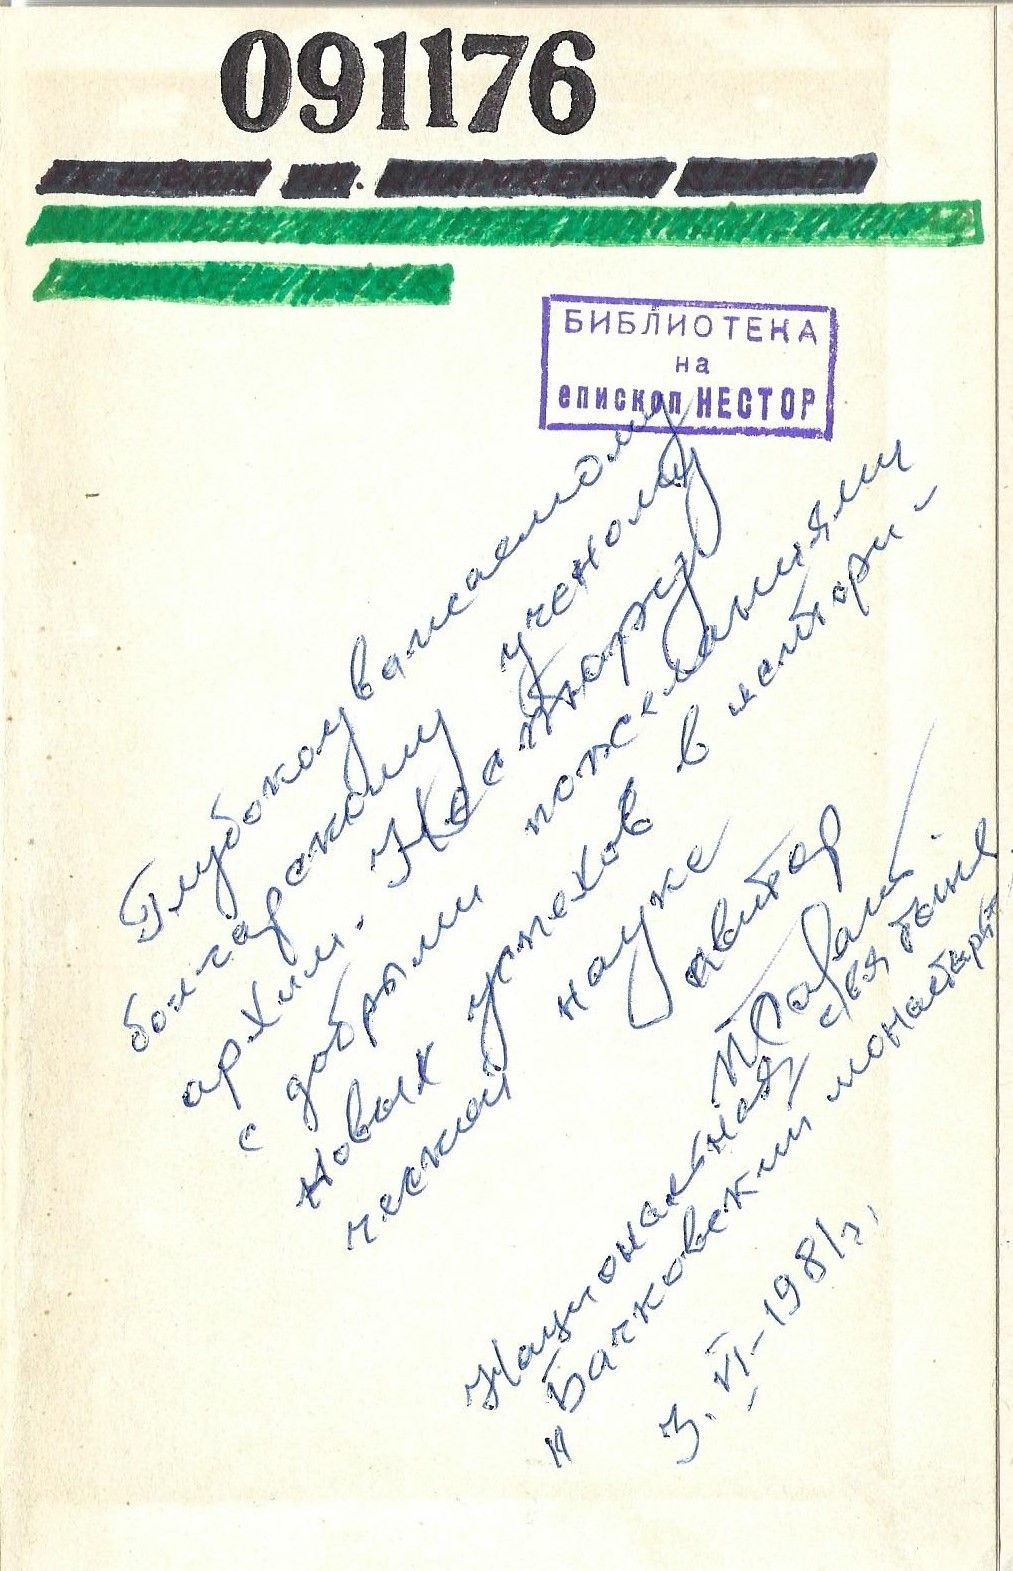 091176
БИБЛИОТЕКА
на
епископ НЕСТОР
Глубокоуважаемому
болгарскому ученому
архим. Нестору
с добрыми пожеланиями
новых успехов в истори-
ческой науке
автор
Национальная святыня
"Бачковский монастырь
3.VI-1981г.